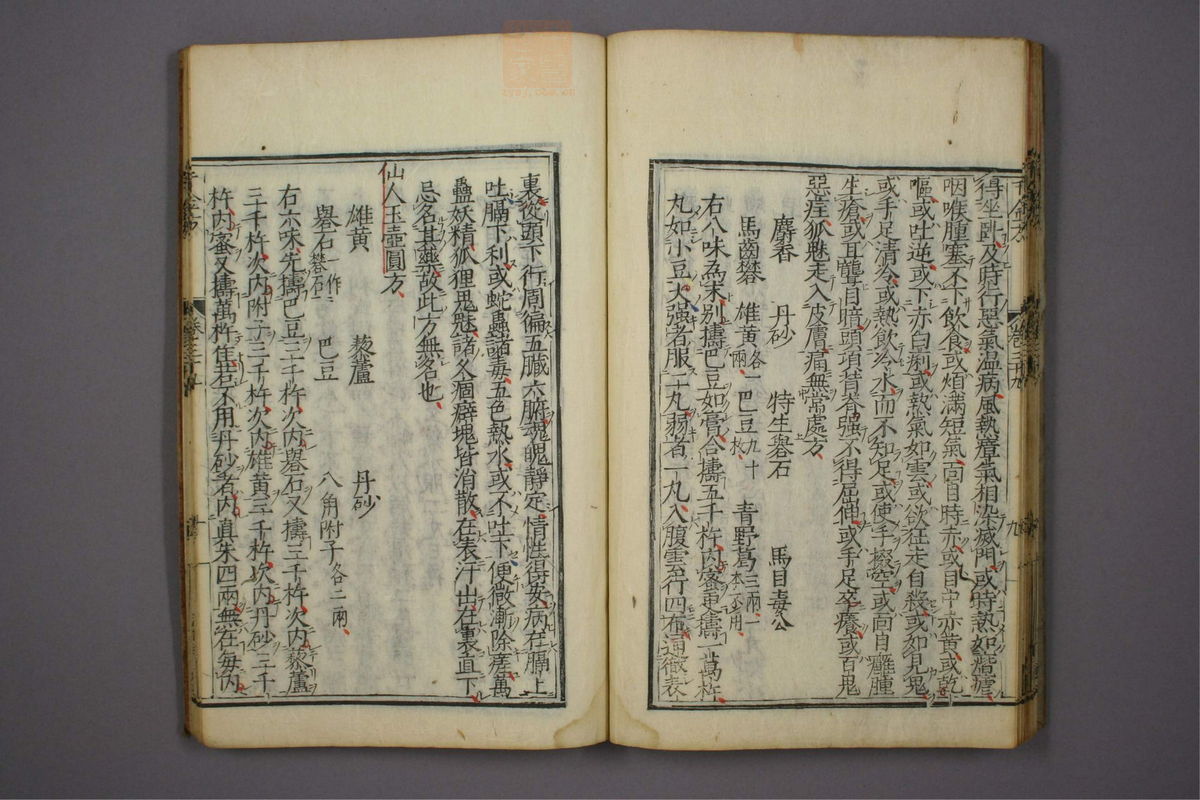 得坐卧及時行惡氣温病風熱瘴氣相染滅門或時熱如瘧
咽喉腫塞不下飲食或煩滿短氣面目時赤或目中赤黄或乾
嘔或吐逆或下赤白痢或熱氣如雲或欲狂走自殺或如見鬼
或手足清冷或熱飲冷水而不知足或使手掇空或面目癰腫
生瘡或耳聾目暗頭項背脊強不得屈伸或手足卒癢或百鬼
惡疰狐魅走入皮膚痛無常處方
麝香 丹砂 特生礜石 馬目毒公
馬齒礬 雄黄各一兩 巴豆九十枚 青野葛三兩一本不用
右八味為末别擣巴豆如膏合擣五千杵内蜜更擣一萬杵
丸如小豆大強者服二丸弱者一丸入腹雲行四布通徹表
裏從頭下行周徧五臓六腑魂魄靜定情性得安病在膈上
吐膈下利或蛇蟲諸毒五色熱水或不吐下便微漸除差萬
蠱妖精狐狸鬼魅諸久痼癖塊皆消散在表汗出在裏直下
忌名其藥故此方無名也
仙人玉壺圓方
雄黄 藜蘆 丹砂
礜石一作礬石 巴豆 八角附子各二兩
右六味先擣巴豆三千杵次内礜石又擣三千杵次内藜蘆
三千杵次内附子三千杵次内雄黄三千杵次内丹砂三千
杵内蜜又擣萬杵佳若不用丹砂者内真朱四兩無在毎内